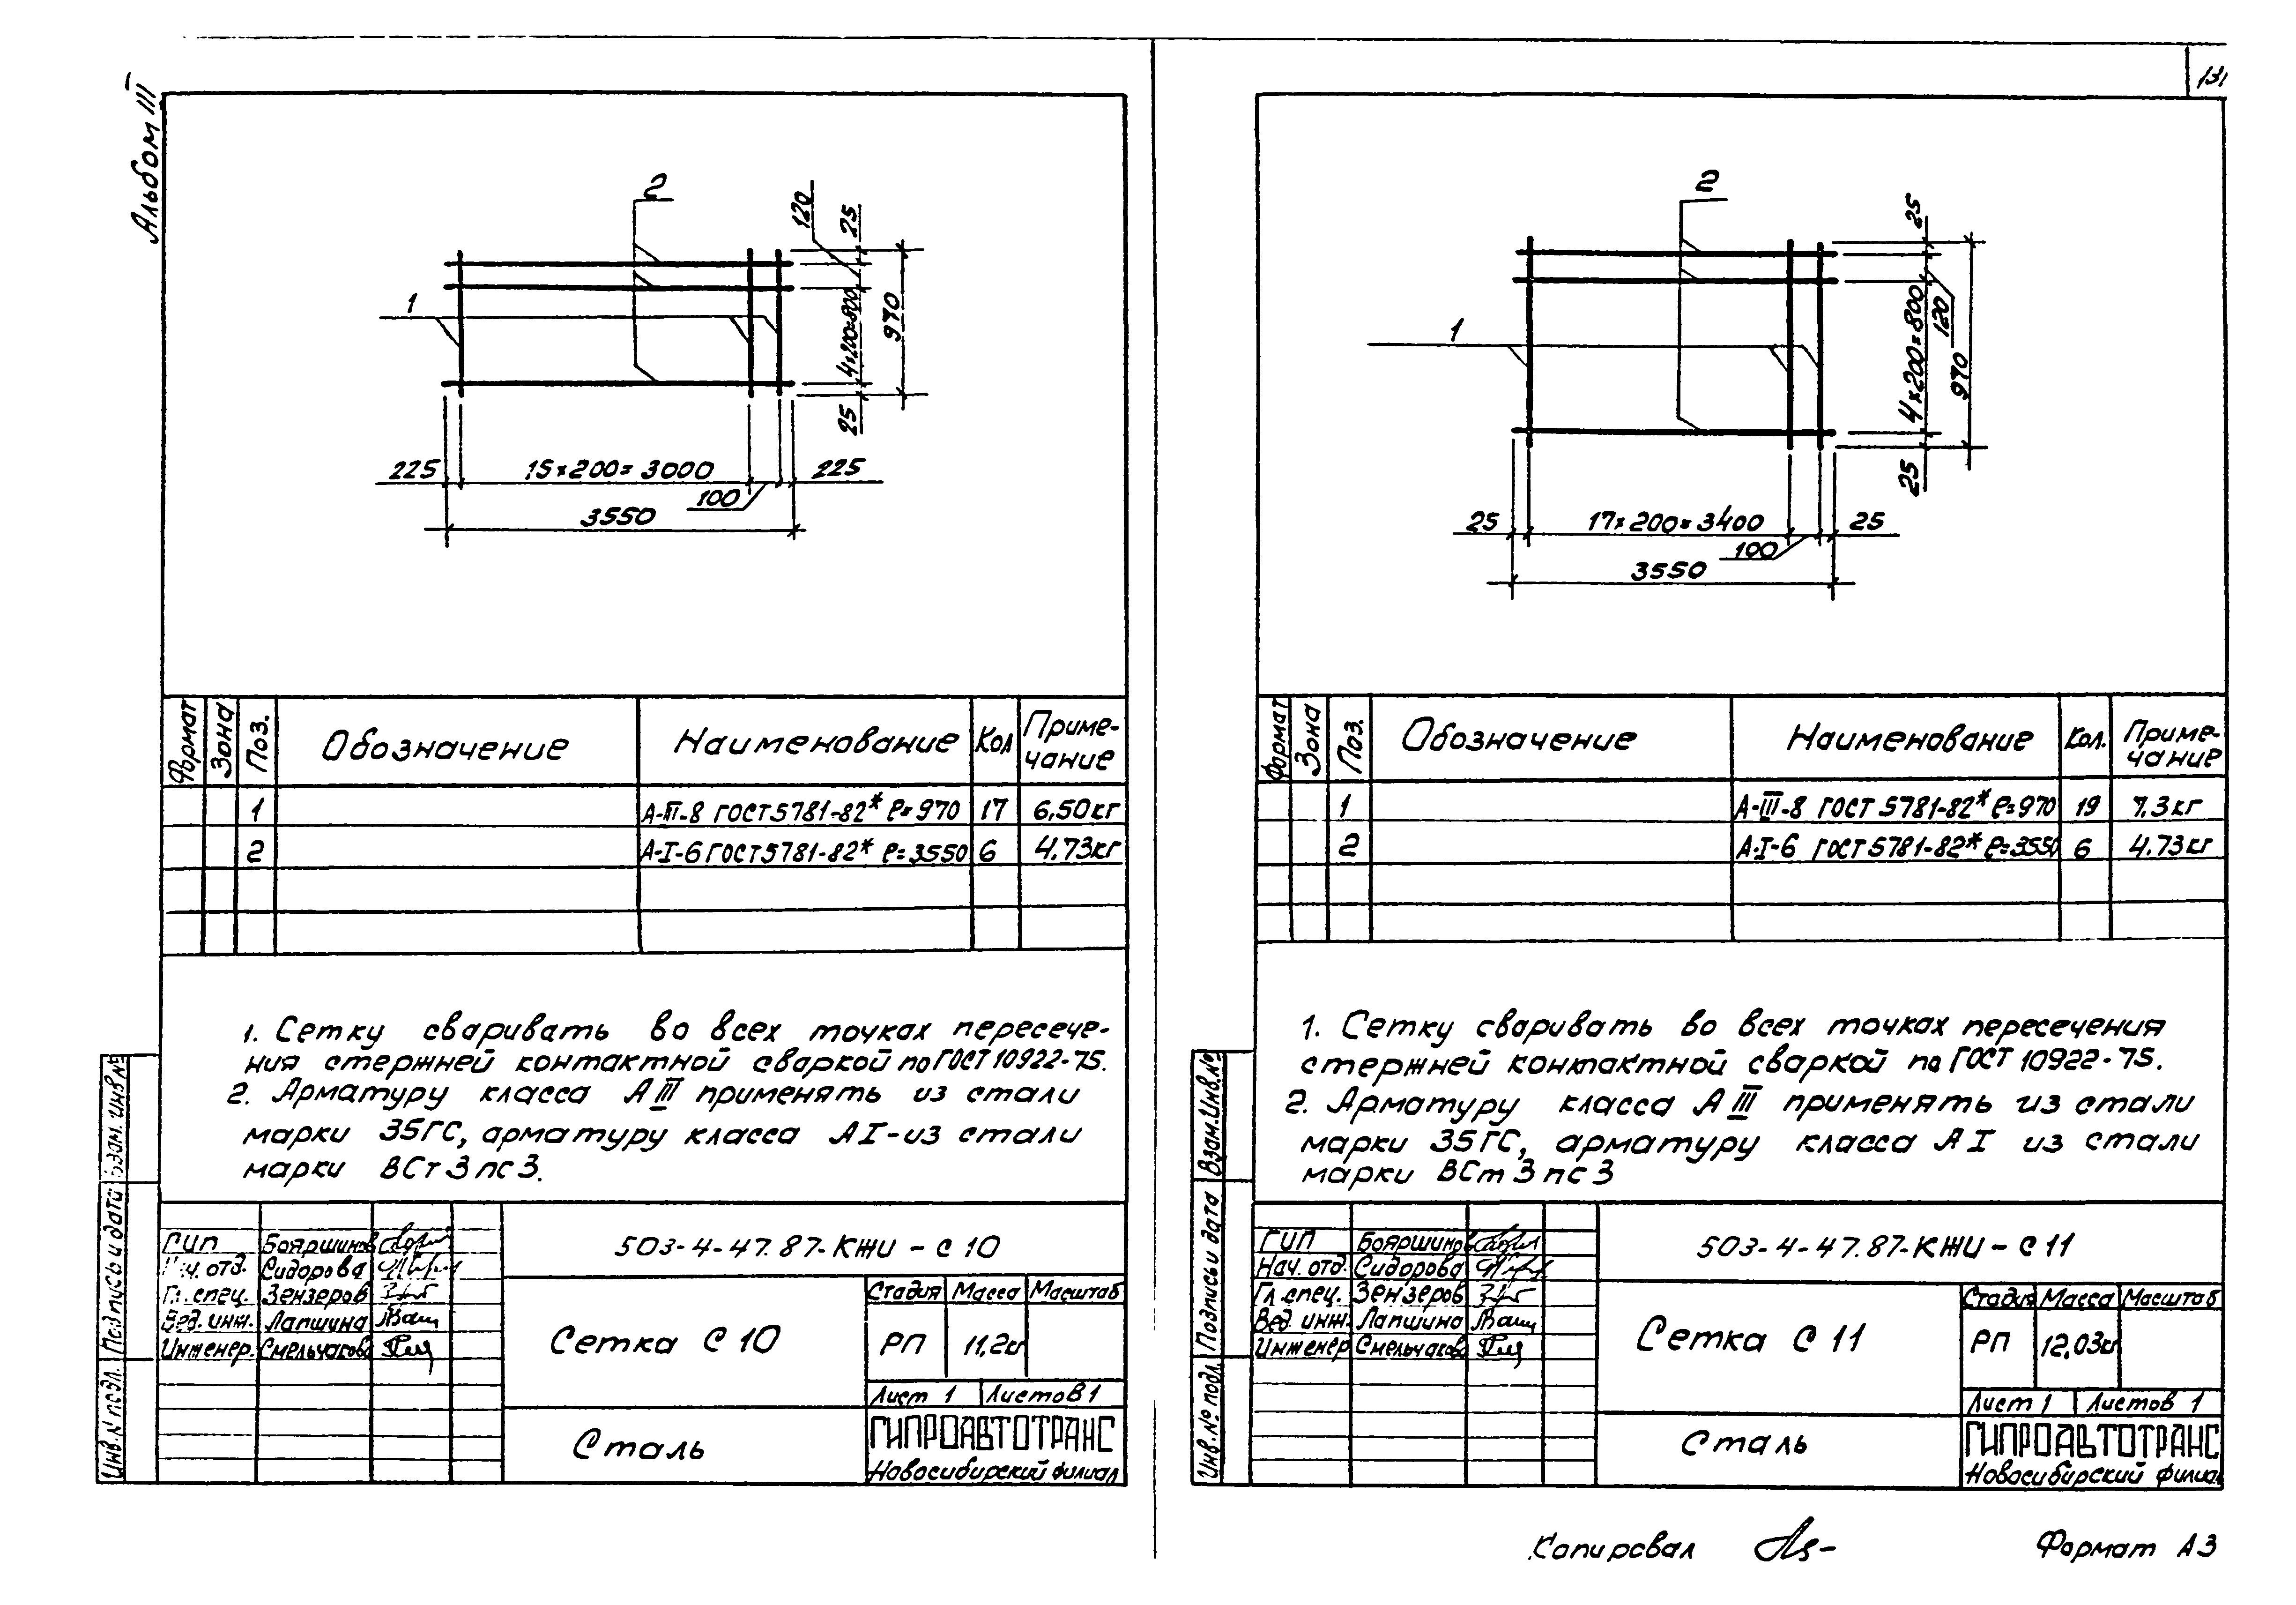 Альбом III
131
2
120
25
1
4х200=800
970
25
225
15×200=3000
225
100
3550
Формат
Зона
Поз.
Обозначение
Наименование
Кол
Приме-
чание
1 А-III-8 ГОСТ 5781-82* ℓ=970 17 6,50кг
2 А-I-6 ГОСТ 5781-82* ℓ=3550 6 4.73кг
1. Сетку сваривать во всех точках пересече-
ния стержней контактной сваркой по ГОСТ 10922-75.
2. Арматуру класса АIII применять из стали
марки 35ГС, арматуру класса АI-из стали
марки ВСт3пс3.
Инв.№ подл.
Подпись и дата
Взам. инв №
ГИП Бояршинов
Нач. отд. Сидорова
Гл. спец. Зензеров
Вед. инж. Лапшина
Инженер. Смельчакова
503-4-47.87-КЖИ-С10
Сетка С10
Стадия Масса Масштаб
РП 11,2кг
Лист 1 Листов 1
Сталь
ГИПРОАВТОТРАНС
Новосибирский филиал
2
25
1
4×200=800
120
970
25
25
17×200=3400
25
100
3550
Формат
Зона
Поз.
Обозначение
Наименование
Кол.
Приме-
чание
1 А-III-8 ГОСТ 5781-82* ℓ=970 19 7.3кг
2 А-I-6 ГОСТ 5781-82* ℓ=3550 6 4.73кг
1. Сетку сваривать во всех точках пересечения
стержней контактной сваркой по ГОСТ 10922-75.
2. Арматуру класса АIII применять из стали
марки 35ГС, арматуру класса АI из стали
марки ВСт3пс3
Инв.№ подл.
Подпись и дата
Взам.Инв.№
ГИП Бояршинов
Нач. отд. Сидорова
Гл. спец. Зензеров
Вед. инж. Лапшина
Инженер Смельчакова
503-4-47.87-КЖИ-С11
Сетка С11
Стадия Масса Масштаб
РП 12,03кг
Лист 1 Листов 1
Сталь
ГИПРОАВТОТРАНС
Новосибирский филиал
Копировал
Формат А3